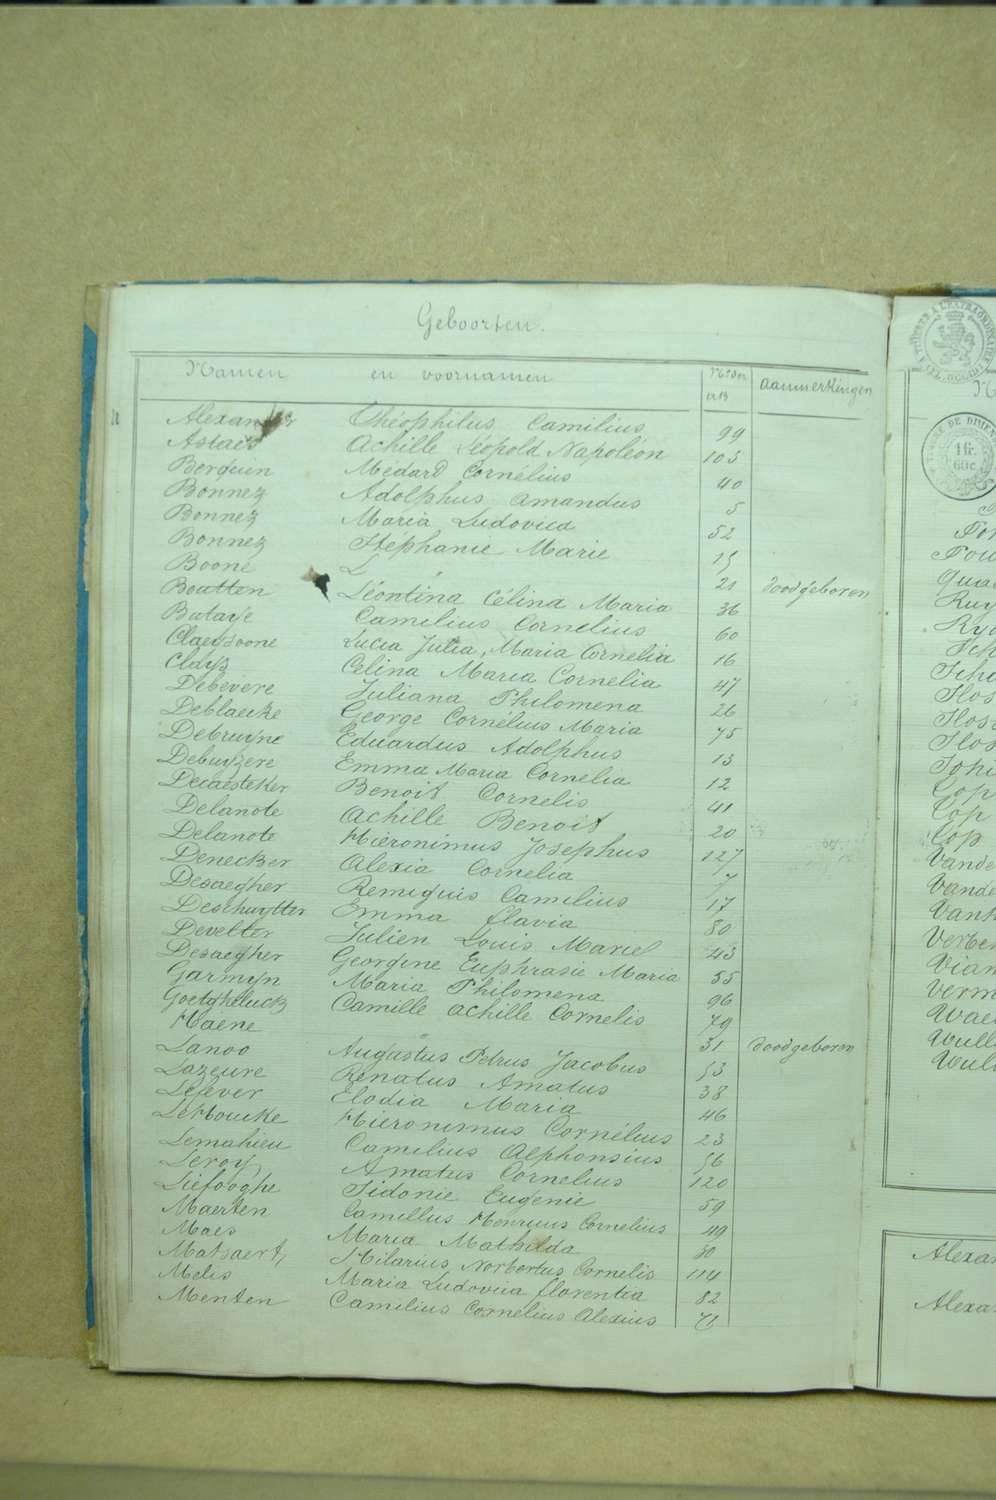 Geboorten.
Namen en voornamen Nr der akt aanmerkingen
Alexander Théophilus Camilius 99
Astaes Achille Léopold Napoléon 103
Berquin Médard Cornélius 40
Bonnez Adolphus Amandus 5
Bonnez Maria Ludovica 52
Bonnez Stéphanie Marie 15
Boone 21 doodgeboren
Boutten Léontina Célina Maria 36
Bataye Camilius Cornelius 60
Claeysoone Lucia Julia, Maria Cornelia 16
Clays Celina Maria Cornelia 47
Debevere Juliana Philomena 26
Deblaecke George Cornélius Maria 75
Debruyne Eduardus Adolphus 13
Debuyzere Emma Maria Cornelia 12
Decaesteker Benoit Cornelis 41
Delanote Achille Benoit 20
Delanote Hiëronimus Josephus 127
Denecker Alexia Cornelia 7
Desaegher Remiguis Camilius 17
Deschuytter Emma flavia 80
Develter Julien Louis Marcel 43
Desaegher Georgine Euphrasie Maria 55
Garmyn Maria Philomena 96
Goetgheluck Camille Achille Cornelis 79
Haene " 31 doodgeboren
Lanoo Augustus Petrus Jacobus 53
Lazeure Renatus Amatus 38
Lefever Elodia Maria 46
LeHoucke Hieronimus Cornélius 23
Lemahieu Camilius Alphonsius 56
Leroy Amatus Cornelius 120
Liefooghe Sidonie Eugenie 59
Maerten Camillus Cornelius 49
Maes Maria Mathilda 30
Matsaert Hilarius Norbertus Cornelis 114
Melis Maria Ludovica florentia 82
Menten Camilius Cornelius Alexius 71
TIMBRE DE DIMEN
1 fr.
60 c
Vande
Vande
Vanh
Verbe
Vian
Verm
Wae
Wull
Wul
Alexan
Alexan